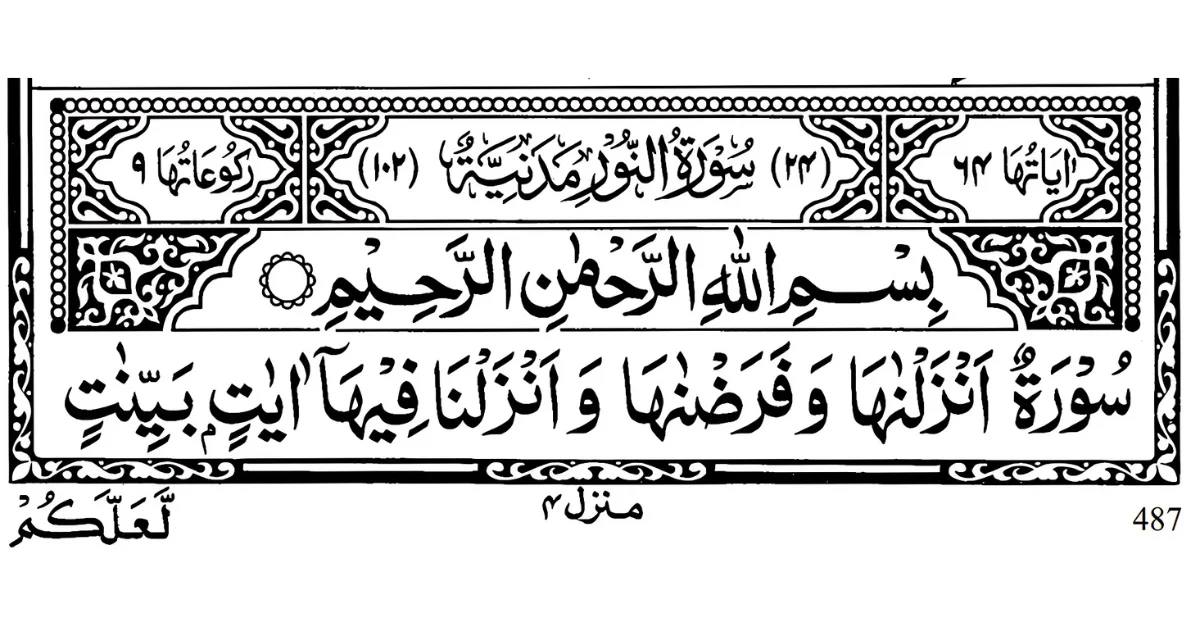 اٰيَاتُهَا ٦٤ (٢٤) سُوْرَةُ النُّوْرِ مَدَنِيَّةٌ (١٠٢) رَكُوْعَاتُهَا ٩
بِسْمِ اللّٰهِ الرَّحْمٰنِ الرَّحِيْمِ
سُوْرَةٌ اَنْزَلْنٰهَا وَ فَرَضْنٰهَا وَ اَنْزَلْنَا فِيْهَآ اٰيٰتٍۭ بَيِّنٰتٍ
لَّعَلَّكُمْ منزل ٤ 487